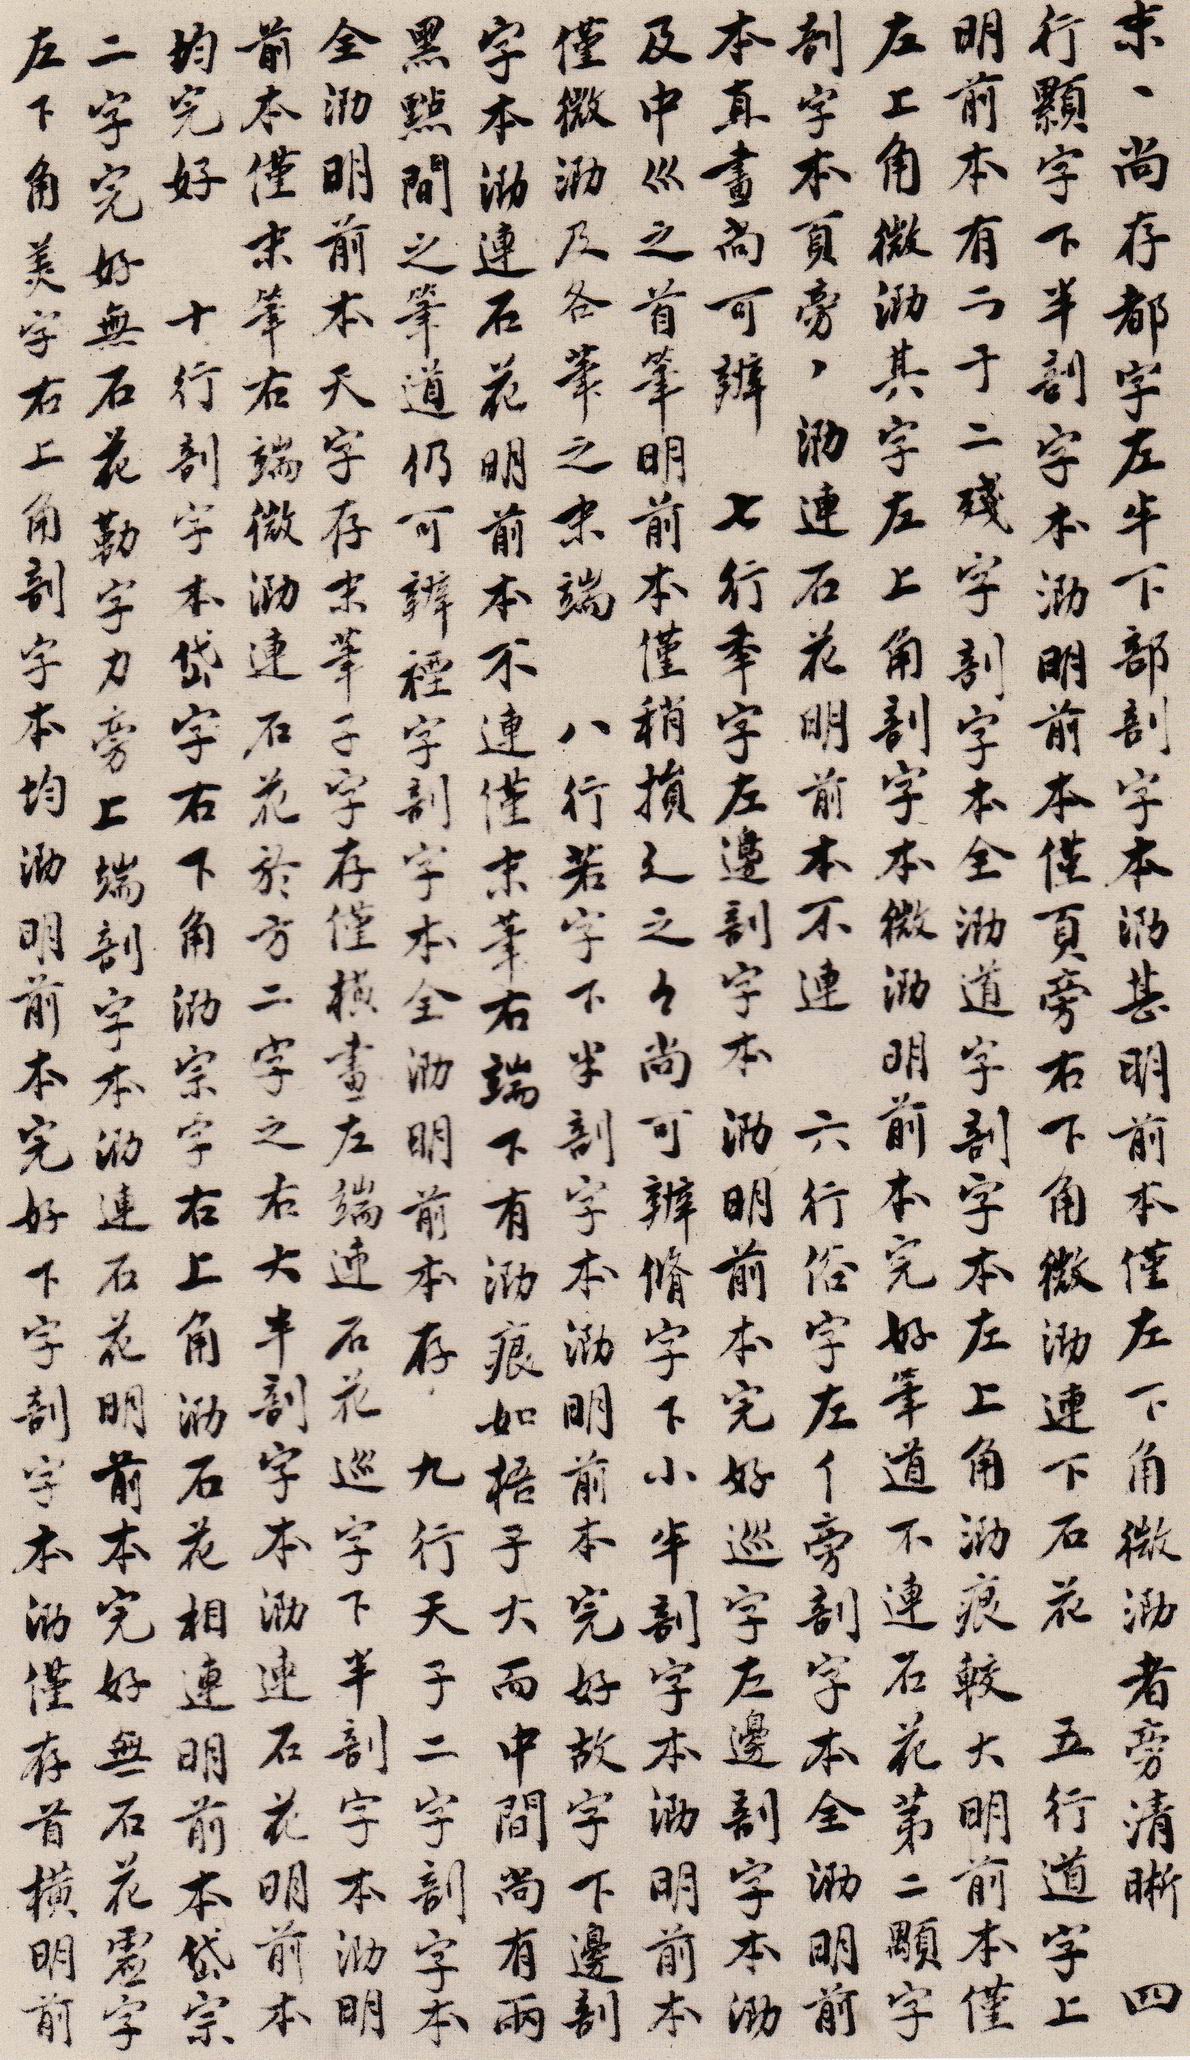 末丶尚存都字左半下部剖字本泐甚明前本僅左下角微泐者旁清晰　四
行顯字下半剖字本泐明前本僅頁旁右下角微泐連下石花　五行道字上
明前本有二于二殘字剖字本全泐道字剖字本左上角泐痕較大明前本僅
左上角微泐其字左上角剖字本微泐明前本完好筆道不連石花第二顯字
剖字本頁旁丶泐連石花明前本不連　六行俗字左亻旁剖字本全泐明前
本真畫尚可辨　七行奉字左邊剖字本泐明前本完好巡字左邊剖字本泐
及中巛之首筆明前本僅稍損辶之く尚可辨脩字下小半剖字本泐明前本
僅微泐及各筆之末端　八行若字下半剖字本泐明前本完好故字下邊剖
字本泐連石花明前本不連僅末筆右端下有泐痕如梧子大而中間尚有兩
黑點間之筆道仍可辨禋字剖字本全泐明前本存　九行天子二字剖字本
全泐明前本天字存末筆子字存僅橫畫左端連石花巡字下半剖字本泐明
前本僅末筆右端微泐連石花於方二字之右大半剖字本泐連石花明前本
均完好　十行剖字本岱字右下角泐宗字右上角泐石花相連明前本岱宗
二字完好無石花勒字力旁上端剖字本泐連石花明前本完好無石花虛字
左下角美字右上角剖字本均泐明前本完好下字剖字本泐僅存首橫明前